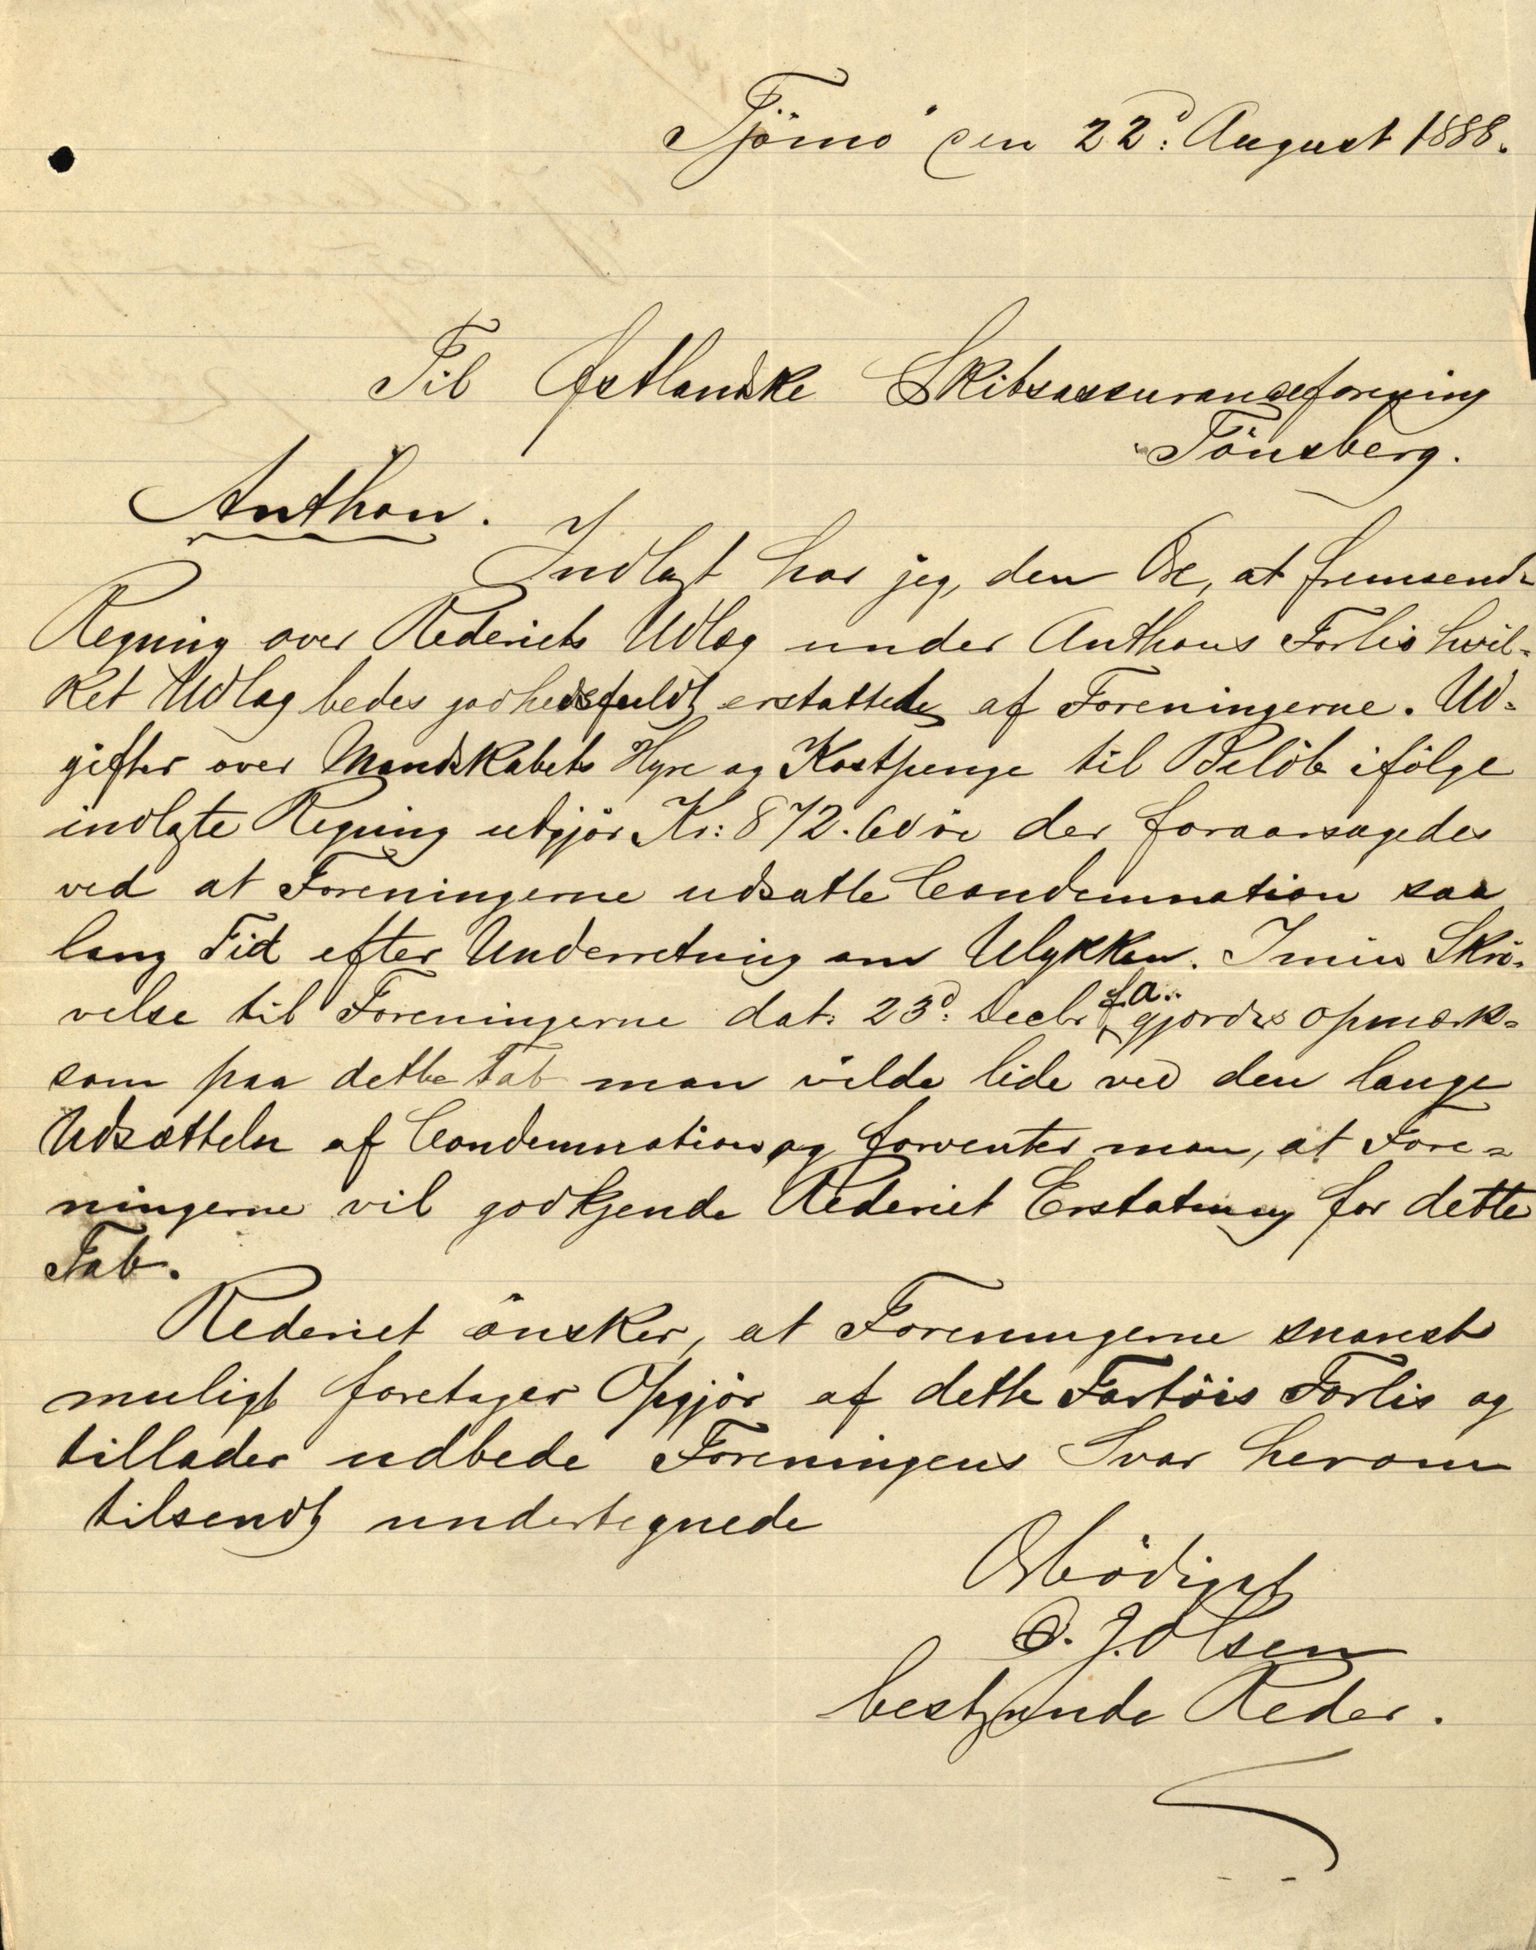 Tjömö den 22d: August 1888.
Til Østlandske Skibsassuranceforening
Tönsberg.
Anthon.
Indlagt har jeg, den Ære, at fremsend-
Regning over Rederiets Udlæg under Anthons Forlis hvil-
ket Udlæg bedes godhedsfuldt erstattede af Foreningerne. Ud-
gifter over Mandskabets Hyre og Kostpenge til Belöb ifölge
indlagte Regning udgjör Kr: 872.60 öre der foraarsagedes
ved at Foreningerne udsatte Condemnation saa
lang Tid efter Underretning om Ulykken. I min Skri-
velse til Foreningerne dat: 23d: Decbr f.a. gjordes opmærk-
som paa dette Tab man vilde lide ved den lange
Udsættelse af Condemnation og forventer man, at Fore-
ningerne vil godkjende Rederiet Erstatning for dette
Tab.
Rederiet önsker, at Foreningerne snarest
muligt foretager Opgjör af dette Fartöis Forlis og
tillader udbede Foreningens Svar herom
tilsendt undertegnede
Ærbödigst
O. J. Olsen
bestyrende Reder.